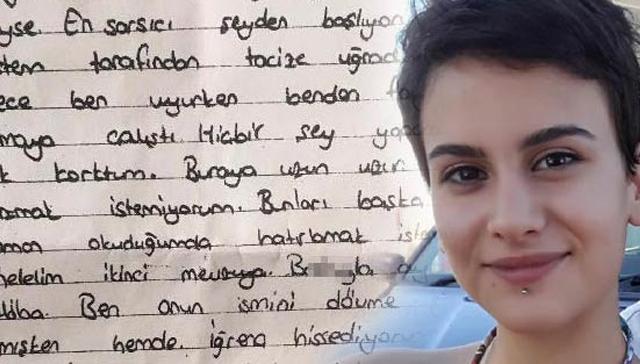 yse. En sarsıcı şeyden başlıyor
tarafından tacize uğrad
ece ben uyurken benden fa
maya çalıştı. Hiçbir şey yap
k korktum. Buraya uzun uzun
azmak istemiyorum. Bunları başka
aman okuduğumda hatırlamak iste
helelim ikinci mevzuya. B
liba. Ben onun ismini dövme
mışken hemde. İğrenç hissediyoru